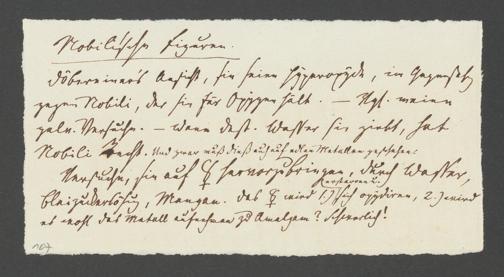 Nobili'sche Figuren.
Döbereiner's Ansicht, sie seien Hyperoxyde, im Gegensatz
gegen Nobili, der sie für Oxygen hält. – Vgl. meine
galv. Versuche. – Wenn dest. Wasser sie giebt, hat
Nobili Recht. Und zwar muß dieß auch auf edlen Metallen geschehen.
Versuche, sie auf ☿ hervorzubringen, durch Wasser,
Bleizuckerlösung, Mangan. Das ☿ wird 1.) sich oxydiren, 2.) wird
es wohl das Metall aufnehmen zu Amalgam? Schwerlich!
107